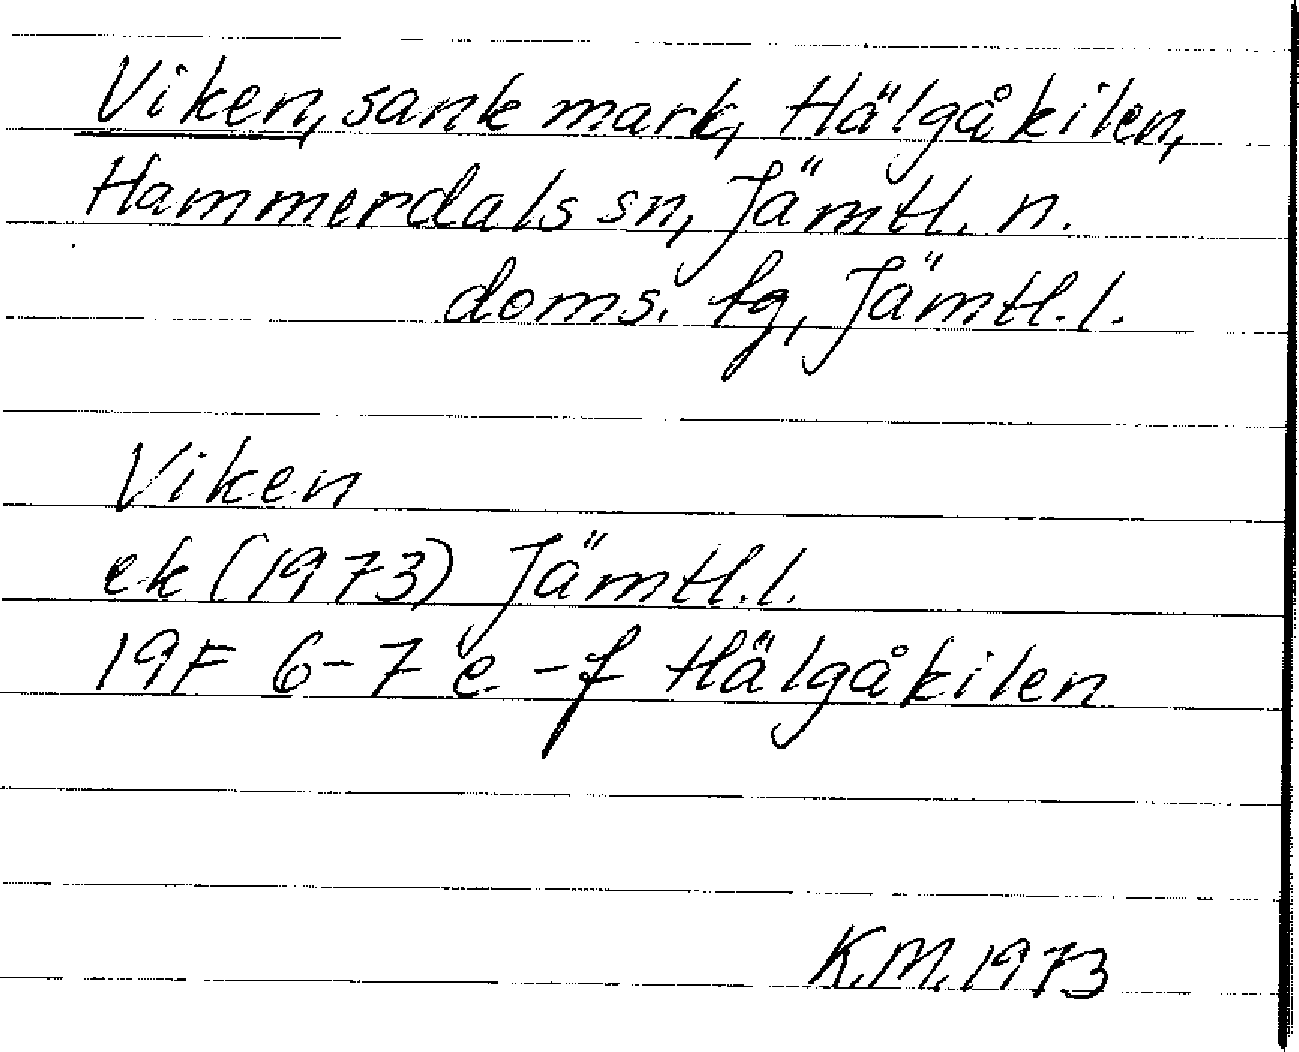 Viken, sank mark, Hälgåkilen,
Hammerdals sn, Jämtl. n.
doms. tg, Jämtl. l.
Viken
ek (1973) Jämtl. l.
19F 6-7 e-f Hälgåkilen
K.M. 1973